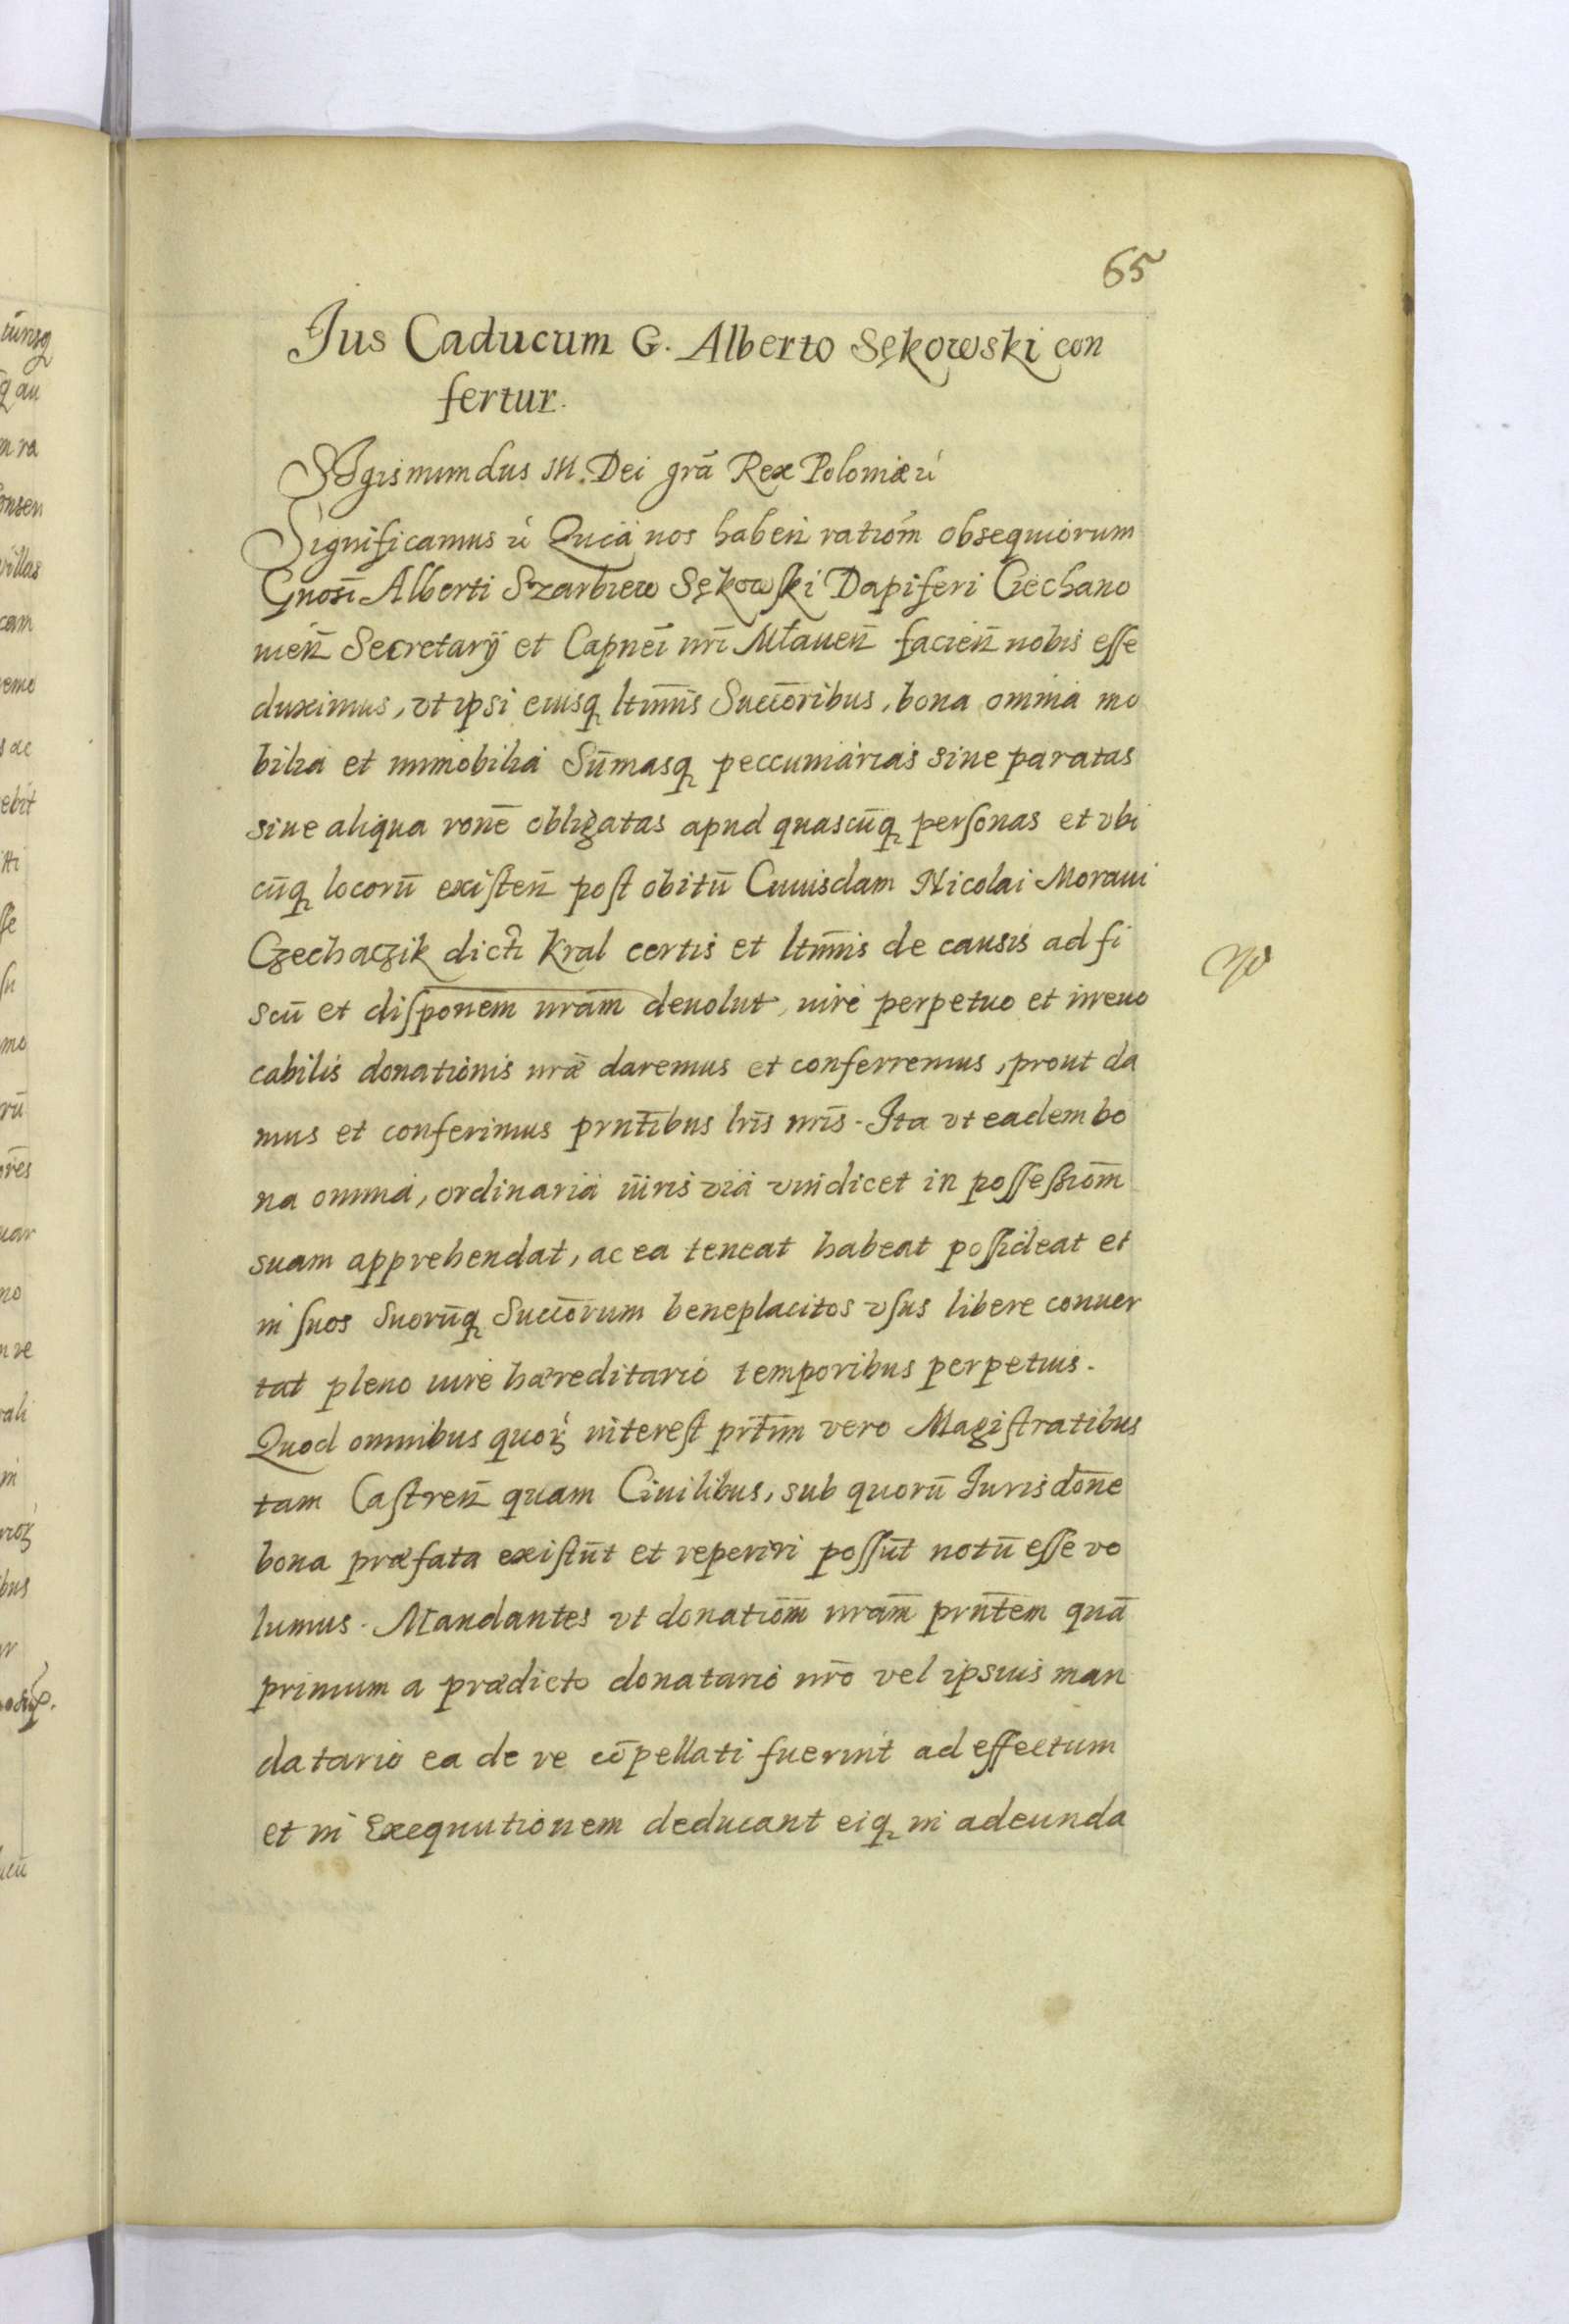 65
Jus Caducum G. Alberto Sękowski con
fertur.
SIgismundus III. Dei grã Rex Poloniæ
Significamus Quia nos haben ratiom̃ obsequiorum
Gnosi Alberti Szarbiew Sękowſki Dapiferi Ciechano
uien̄ Secretarÿ et Capnei nr̃i Mlauen̄ facien̄ nobis eſſe
duximus, vt ipsi eiusq ltimĩs Succōribus, bona omnia mo
bilia et immobilia Sūmasq peccuniarias siue paratas
siue aliqua ronē obligatas apud quascūq perſonas et vbi
cūq locorū exiſten̄ poſt obitū Cuiusdam Nicolai Moraui
Czechaczik dicti Kral certis et ltimĩs de causis ad fi
scū et diſponem̃ nram̃ deuolut, iure perpetuo et irreuo
cabilis donationis nræ̃ daremus et conferremus, prout da
mus et conferimus prntĩbus lrĩs nrĩs. Ita vt eadem bo
na omnia, ordinaria iuris via vindicet in poſſeſsiom̃
suam apprehendat, ac ea teneat habeat poſsideat et
in ſuos Suorūq Succōrum beneplacitos vſus libere conuer
tat pleno iure hæreditario temporibus perpetuis.
Quod omnibus quoꝝ intereſt prtim̃ vero Magiſtratibus
tam Caſtren̄ quam Ciuilibus, sub quorū Jurisdōne
bona præfata exiſtūt et reperiri poſſūt notū eſſe vo
lumus. Mandantes vt donatiom̃ nram̃ prntẽm quā
primum a prædicto donatario nrõ vel ipsius man
datario ea de re cōpellati fuerint ad effectum
et in Exequutionem deducant eiq in adeunda